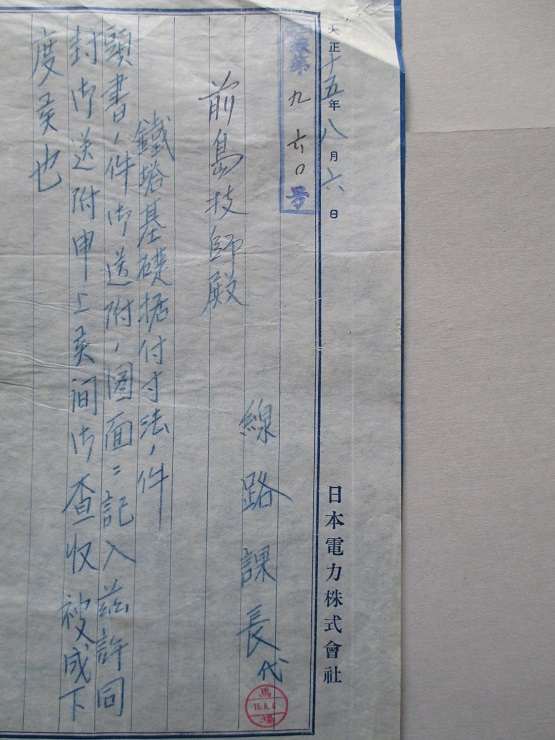 大正十五年八月六日
第九六〇号
線路課長代
前島技師殿
鐵塔基礎据付寸法ノ件
頭書ノ件御送附ノ図面ニ記入茲許同
封御送附申上候间御査収被成下
度候也
日本電力株式會社
15.8.6